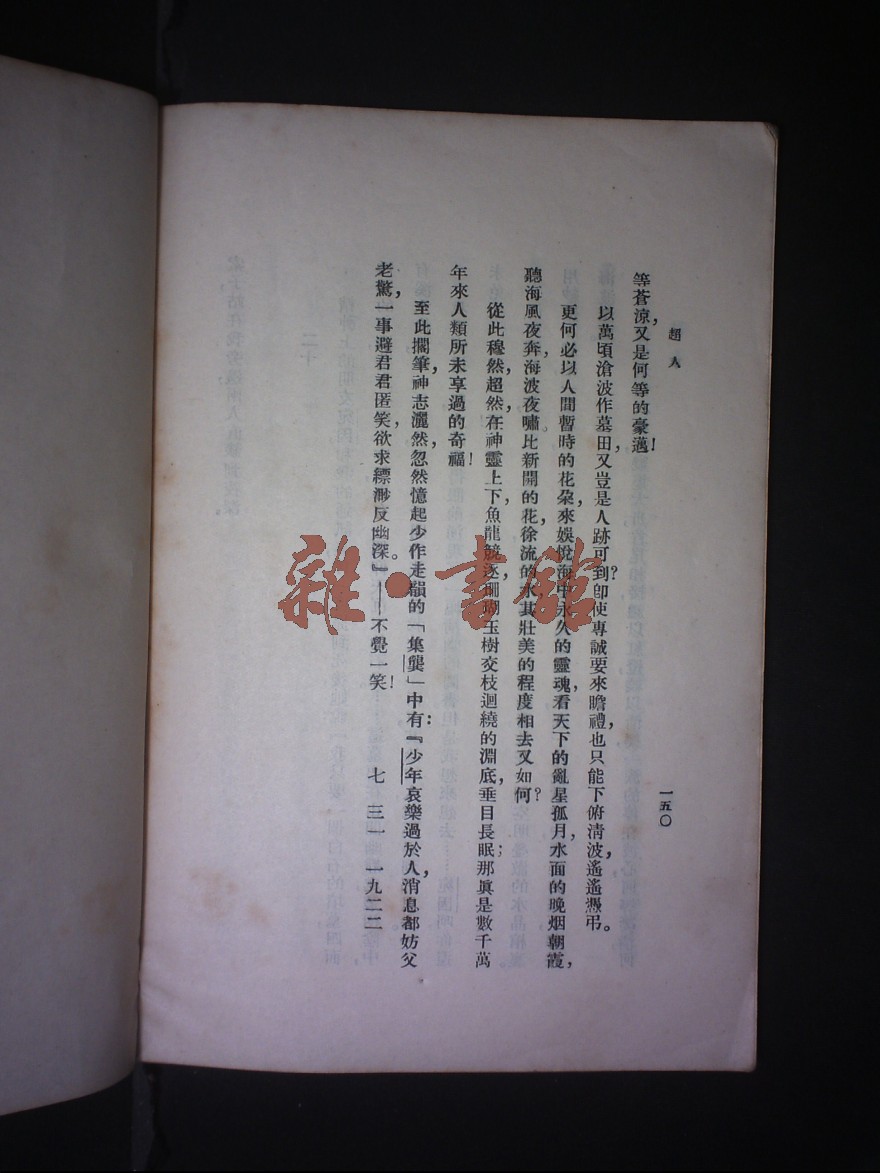 超人
一五〇
等蒼涼，又是何等的豪邁！
以萬頃滄波作墓田，又豈是人跡可到？卽使專誠要來瞻禮，也只能下俯淸波，遙遙憑弔。
更何必以人間暫時的花朶，來娛悅海中永久的靈魂，看天下的亂星孤月，水面的晚烟朝霞，
聽海風夜奔，海波夜嘯。比新開的花，徐流的水，其壯美的程度相去又如何？
從此穆然，超然，在神靈上下，魚龍競逐，珊瑚玉樹交枝迴繞的淵底，垂目長眠；那眞是數千萬
年來人類所未享過的奇福！
至此擱筆，神志灑然，忽然憶起少作走韻的「集龔」中有：『少年哀樂過於人，消息都妨父
老驚，一事避君君匿笑，欲求縹渺反幽深。』——不覺一笑！
七 三一 一九二二
雜·書館